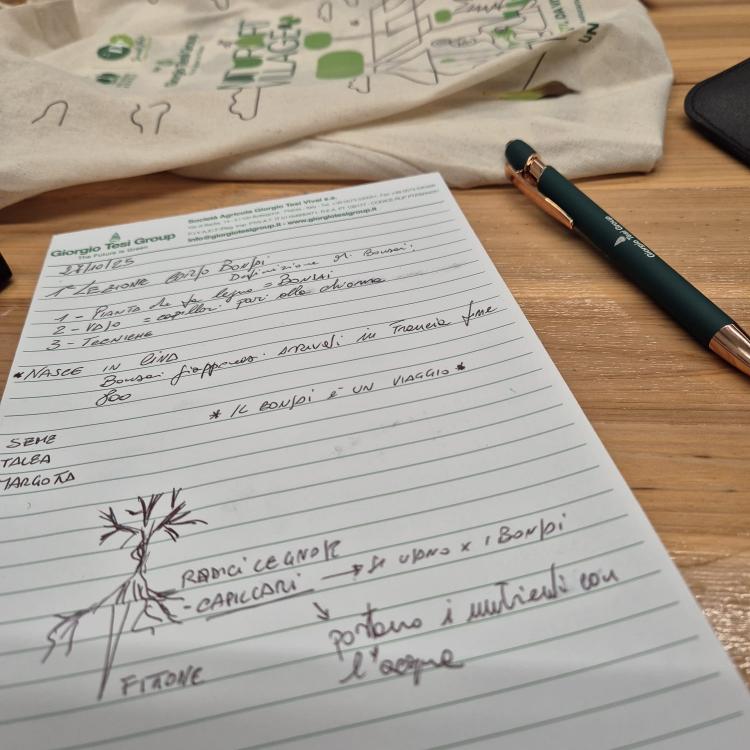 VILLAGE
Giorgio Tesi Group
The Future is Green
Società Agricola Giorgio Tesi Vivai s.s.
info@giorgiotesigroup.it - www.giorgiotesigroup.it
1° LEZIONE CORSO BONSAI
Definizione di Bonsai:
1 - PIANTA che fa legno = BONSAI
2 - VASO = capillari pari alla chioma
3 - TECNICHE
*NASCE IN CINA
Bonsai giapponesi arrivati in Francia fine
800
* IL BONSAI È UN VIAGGIO *
SEME
TALEA
MARGOTTA
RADICI LEGNOSE
- CAPILLARI → Si USANO x i BONSAI
portano i nutrienti con
l'acqua
FITTONE
Giorgio Tesi Group